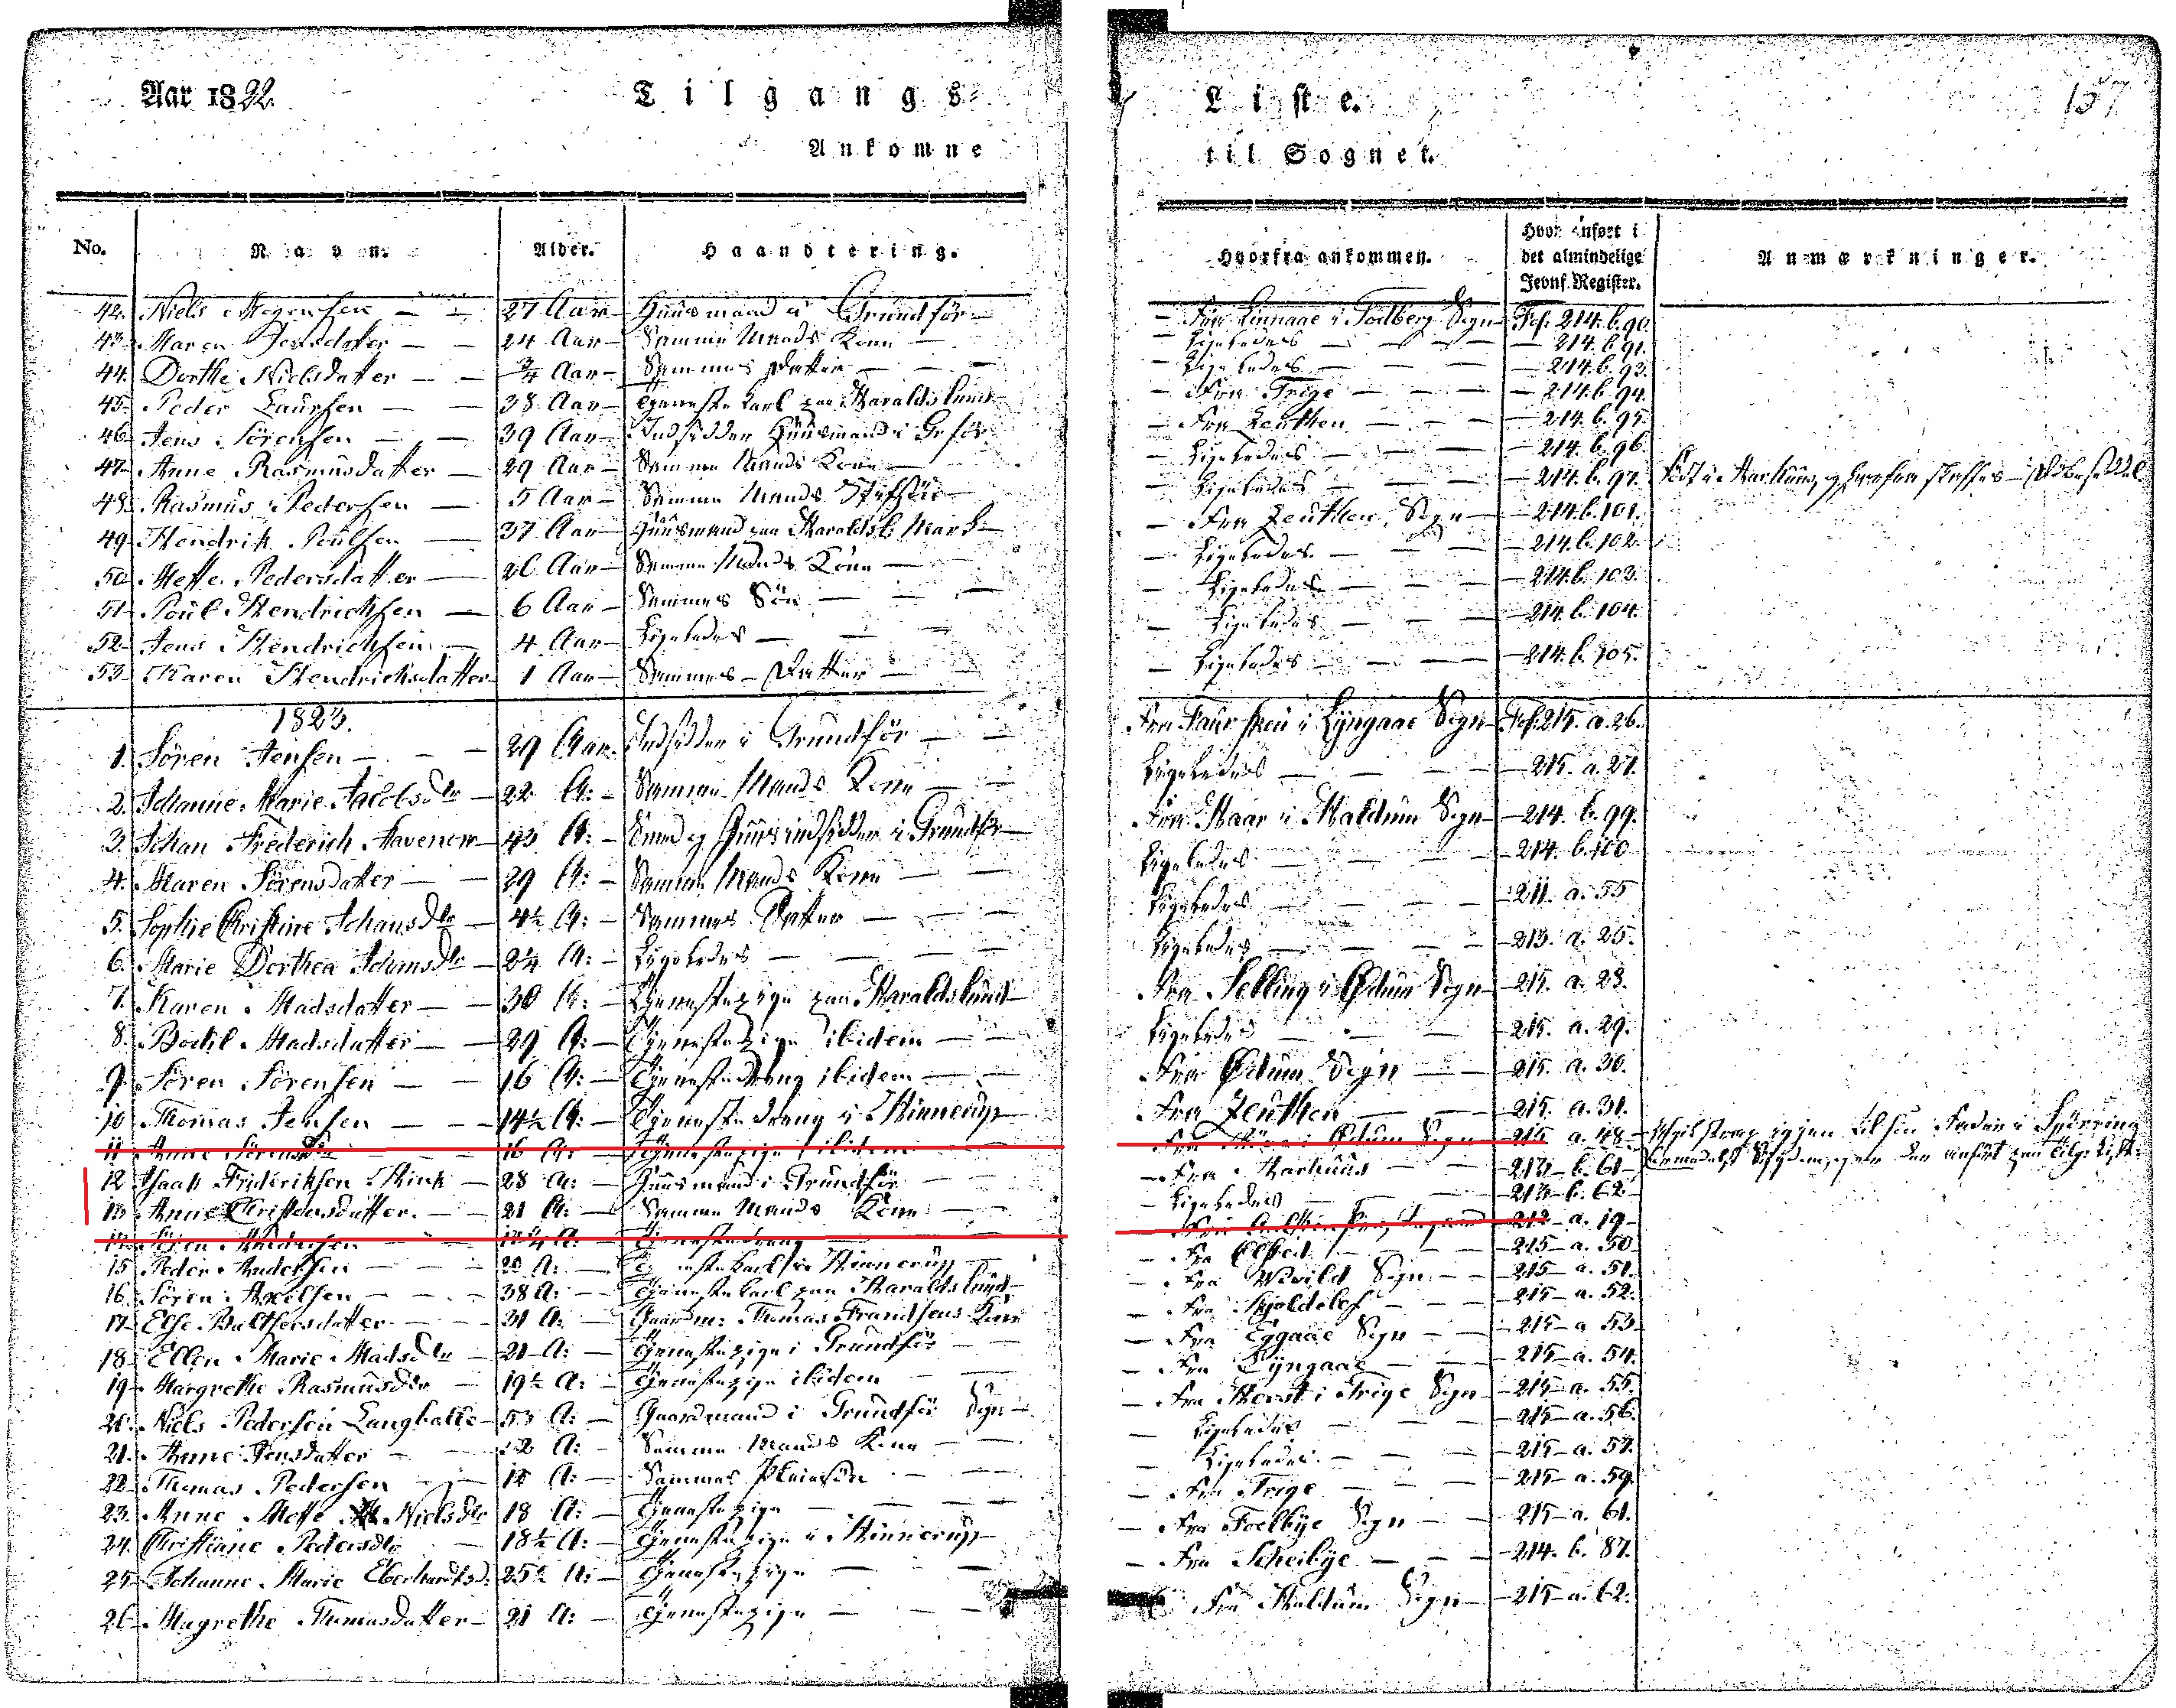 Aar 1822. Tilgangs-Liste. 157
Ankomne til Sognet.
No. Navn. Alder. Haandtering. Hvorfra ankommen. Hvor anført i det almindelige Jevnf. Register. Anmærkninger.
42. Niels Mogensen — 27 Aar — Huusmand i Grundför — Fra Linnaae i Todbierg Sogn — Fol. 214. b. 90.
43. Maren Jensdatter — 24 Aar — Samme Mands Kone — Ligeledes — 214. b. 91.
44. Dorthe Nielsdatter — 3/4 Aar — Sammes Datter — Ligeledes — 214. b. 93.
45. Peder Laursen — 38 Aar — Tjenestekarl paa Haraldslund — Fra Trige — 214. b. 94.
46. Jens Sörensen — 39 Aar — Indsidder Huusmand i Grför — Fra Zeuthen — 214. b. 95.
47. Anne Rasmusdatter — 29 Aar — Samme Mands Kone — Ligeledes — 214. b. 96.
48. Rasmus Pedersen — 5 Aar — Samme Mands Stifsön — Ligeledes — 214. b. 97. Födt i Aarhuus, — Döbeseddel
49. Hendrik Poulsen — 37 Aar — Huusmand paa Haraldsl. Mark — Fra Zeuthen Sogn — 214. b. 101.
50. Mette Pedersdatter — 26 Aar — Samme Mands Kone — Ligeledes — 214. b. 102.
51. Poul Hendrichsen — 6 Aar — Sammes Sön — Ligeledes — 214. b. 103.
52. Jens Hendrichsen — 4 Aar — Ligeledes — Ligeledes — 214. b. 104.
53. Karen Hendrichsdatter 1 Aar — Sammes Datter — Ligeledes — 214. b. 105.
1823.
1. Sören Jensen — 29 Aar. Indsidder i Grundför — Fra Faurskou i Lyngaae Sogn — Fol. 215. a. 26.
2. Johanne Marie Jacobsdtr — 22 A: — Samme Mands Kone — Ligeledes — 215. a. 27.
3. Johan Frederich Havenom — 43 A: — Smed og Huusindsidder i Grundför — Fra Haar i Haldum Sogn — 214. b. 99.
4. Maren Sörensdatter — 29 A: — Samme Mands Kone — Ligeledes — 214. b. 100
5. Sophie Christine Johansdtr — 4½ A: — Sammes Datter — Ligeledes — 211. a. 55
6. Marie Dorthea Johansdtr — 2¼ A: — Ligeledes — Ligeledes — 213. a. 25.
7. Karen Madsdatter — 30 A: — Tjenestepige paa Haraldslund — Fra Selling i Ödum Sogn — 215. a. 28.
8. Bodil Madsdatter — 29 A: — Tjenestepige ibidem — Ligeledes — 215. a. 29.
9. Sören Sörensen — 16 A: — Tjenestedreng ibidem — Fra Ödum Sogn — 215. a. 30.
10 Thomas Jensen — 14½ A: — Tjenestedreng i Hinnerup — Fra Zeuthen — 215. a. 31.
11 Anne Sörensdtr — 16 A: — Tjenestepige ibidem — Fra Ödum Sogn — 215 a. 48 —
12 Isaak Frideriksen Hink — 28 A: — Huusmand i Grundför — Fra Aarhuus — 213 — b. 61 —
13 Anne Christensdatter. — 21 A: — Samme Mands Kone — Ligeledes — 213 — b. 62
14 Sören Andersen — A: — Tjenestedreng — 212 — a. 19 —
15 Peder Andersen — 20 A: — Tjenestekarl i Hinnerup — Fra Elsted — 215 — a. 50
16 Sören Axelsen — 38 A: — Tjenestekarl paa Haraldslund — Fra Hvild Sogn — 215 — a. 51.
17 Else Balthersdatter — 31 A: — Gaardm: Thomas Frandsens Kone — Fra Skjoldelef — 215 — a. 52.
18 Ellen Marie Madsdtr — 21 A: — Tjenestepige i Grundför — Fra Eggaae Sogn — 215 — a 53
19 Margrethe Rasmusdtr — 19½ A: — Tjenestepige ibidem — Fra Lyngaae — 215 — a. 54.
20. Niels Pedersen Langballe — 53 A: — Gaardmand i Grundför Sogn — Fra Herst i Trige Sogn — 215 — a. 55.
21. Anne Jensdatter — A: — Samme Mands Kone — Ligeledes — 215 — a. 56.
22 Thomas Pedersen — 14 A: — Sammes Pleiesön — Ligeledes — 215 — a. 57.
23. Anne Mette Nielsdtr 18 A: — Tjenestepige — Fra Trige — 215 — a. 59.
24. Christiane Pedersdtr 18½ A: — Tjenestepige i Hinnerup — Fra Foelbye Sogn — 215 — a. 61.
25 Johanne Marie Eberhardtsd. 25½ A: — Tjenestepige — Fra Scheibye — 214. b. 87.
26 Magrethe Thomasdatter — 21 A: — Tjenestepige — Fra Haldum Sogn — 215 — a. 62.